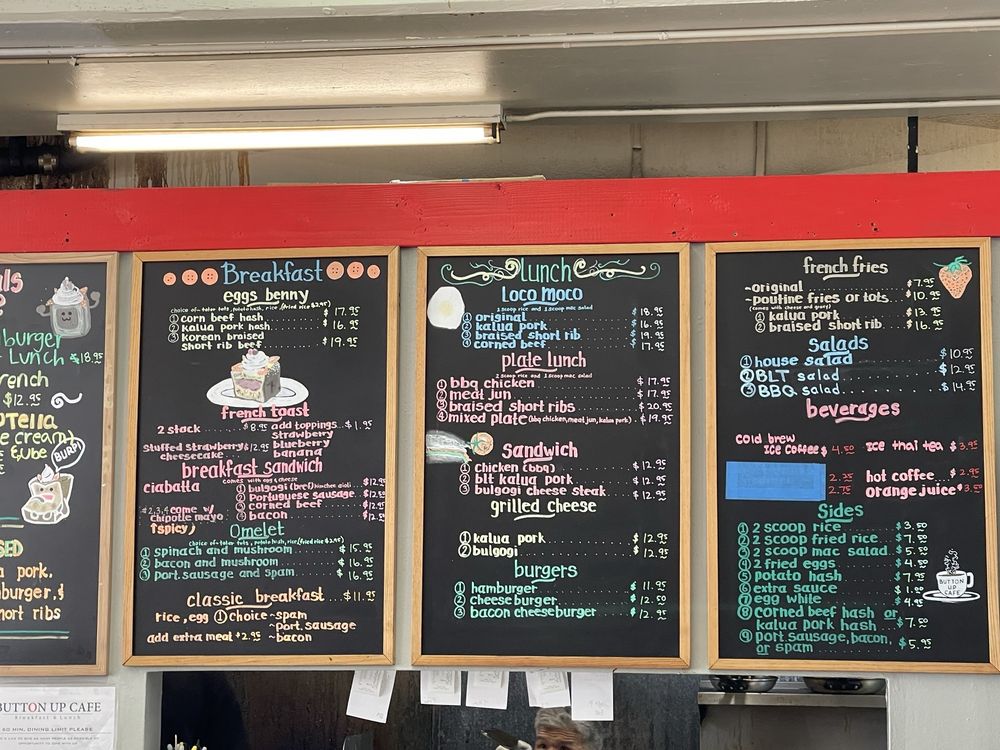 als
burger
Lunch $18.95
rench
$12.95
PTella
e cream
& ube
BURP!
SED
a pork,
burger, $
hort ribs
BUTTON UP CAFE
Breakfast & Lunch
60 MIN. DINING LIMIT PLEASE
Breakfast
eggs benny
choice of tater tots, potato hash, rice (fried rice $2.95)
① corn beef hash $17.95
② kalua pork hash $16.95
③ korean braised
short rib beef $19.95
french toast
2 stack $8.95 add toppings $1.95
strawberry
stuffed strawberry $12.95 blueberry
cheesecake banana
breakfast sandwich
comes with egg & cheese
ciabatta ① bulgogi (beef) kimchee aioli $12.95
② Portuguese sausage $12.95
③ corned beef $12.95
#2,3,4 come w/ ④ bacon $12.95
chipotle mayo
(spicy)
Omelet
choice of tater tots, potato hash, rice (fried rice $2.95)
① spinach and mushroom $15.95
② bacon and mushroom $16.95
③ port. sausage and spam $16.95
classic breakfast $11.95
rice, egg ① choice ~spam
~port. sausage
add extra meat +2.95 ~bacon
lunch
Loco moco
2 scoop rice and 1 scoop mac salad
① original $18.95
② kalua pork $16.95
③ braised short rib $19.95
④ corned beef $17.95
plate lunch
2 scoop rice and 1 scoop mac salad
① bbq chicken $17.95
② meat jun $17.95
③ braised short ribs $20.95
④ mixed plate (bbq chicken, meat jun, kalua pork) $19.95
Sandwich
① chicken (bbq) $12.95
② blt kalua pork $12.95
③ bulgogi cheese steak $12.95
grilled cheese
① kalua pork $12.95
② bulgogi $12.95
burgers
① hamburger $11.95
② cheeseburger $12.50
③ bacon cheeseburger $12.95
french fries
~original $7.95
~poutine fries or tots $10.95
(comes with cheese and gravy)
① kalua pork $13.95
② braised short rib $16.95
Salads
① house salad $10.95
② BLT salad $12.95
③ BBQ salad $14.95
beverages
cold brew
ice coffee $4.50 ice thai tea $3.95
2.25 hot coffee $2.95
2.75 orange juice $3.50
Sides
① 2 scoop rice $3.50
② 2 scoop fried rice $7.50
③ 2 scoop mac salad $5.50
④ 2 fried eggs $4.50
⑤ potato hash $7.95
⑥ extra sauce $1.00
⑦ egg white $4.95
⑧ corned beef hash or
kalua pork hash $7.50
⑨ port sausage, bacon,
or spam $5.95
BUTTON
UP
CAFE